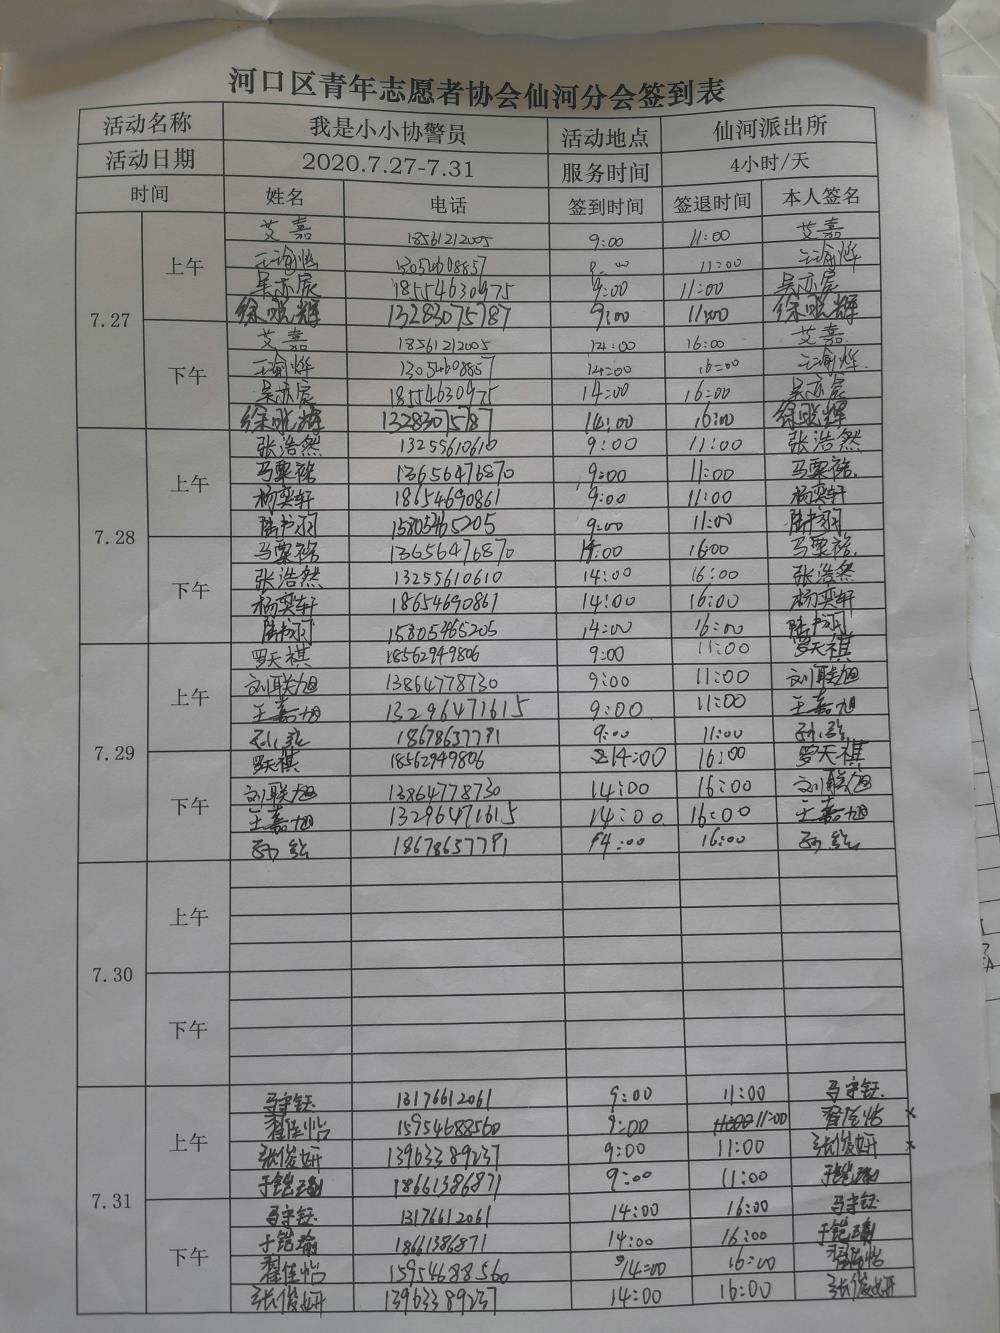 河口区青年志愿者协会仙河分会签到表
活动名称 我是小小协警员 活动地点 仙河派出所
活动日期 2020.7.27-7.31 服务时间 4小时/天
时间 姓名 电话 签到时间 签退时间 本人签名
7.27
上午
艾嘉 18561212005 9:00 11:00 艾嘉
王瑜烨 13054608857 11:00 王瑜烨
吴亦宸 18554630975 9:00 11:00 吴亦宸
徐晓辉 13283075787 9:00 11:00 徐晓辉
下午
艾嘉 18561212005 14:00 16:00 艾嘉
王瑜烨 13054608857 14:00 16:00 王瑜烨
吴亦宸 18554630975 14:00 16:00 吴亦宸
徐晓辉 13283075787 14:00 16:00 徐晓辉
7.28
上午
张浩然 13255610610 9:00 11:00 张浩然
马粟裕 13656476870 9:00 11:00 马粟裕
杨奕轩 18654690861 9:00 11:00 杨奕轩
15805465205 9:00 11:00
下午
马粟裕 13656476870 14:00 16:00 马粟裕
张浩然 13255610610 14:00 16:00 张浩然
杨奕轩 18654690861 14:00 16:00 杨奕轩
15805465205 14:00 16:00
7.29
上午
罗天祺 18562949806 9:00 11:00 罗天祺
刘联旭 13864778730 9:00 11:00 刘联旭
王嘉旭 13296471615 9:00 11:00 王嘉旭
18678637791 9:00 11:00
下午
罗天祺 18562949806 14:00 16:00 罗天祺
刘联旭 13864778730 14:00 16:00 刘联旭
王嘉旭 13296471615 14:00 16:00 王嘉旭
18678637791 14:00 16:00
7.30
上午
下午
7.31
上午
马宇钰 13176612061 9:00 11:00 马宇钰
翟佳怡 15954688560 9:00 11:00 翟佳怡 ×
张俊妍 13963389237 9:00 11:00 张俊妍 ×
于铠瑜 18661386871 9:00 11:00 于铠瑜
下午
马宇钰 13176612061 14:00 16:00 马宇钰
于铠瑜 18661386871 14:00 16:00 于铠瑜
翟佳怡 15954688560 14:00 16:00 翟佳怡
张俊妍 13963389237 14:00 16:00 张俊妍